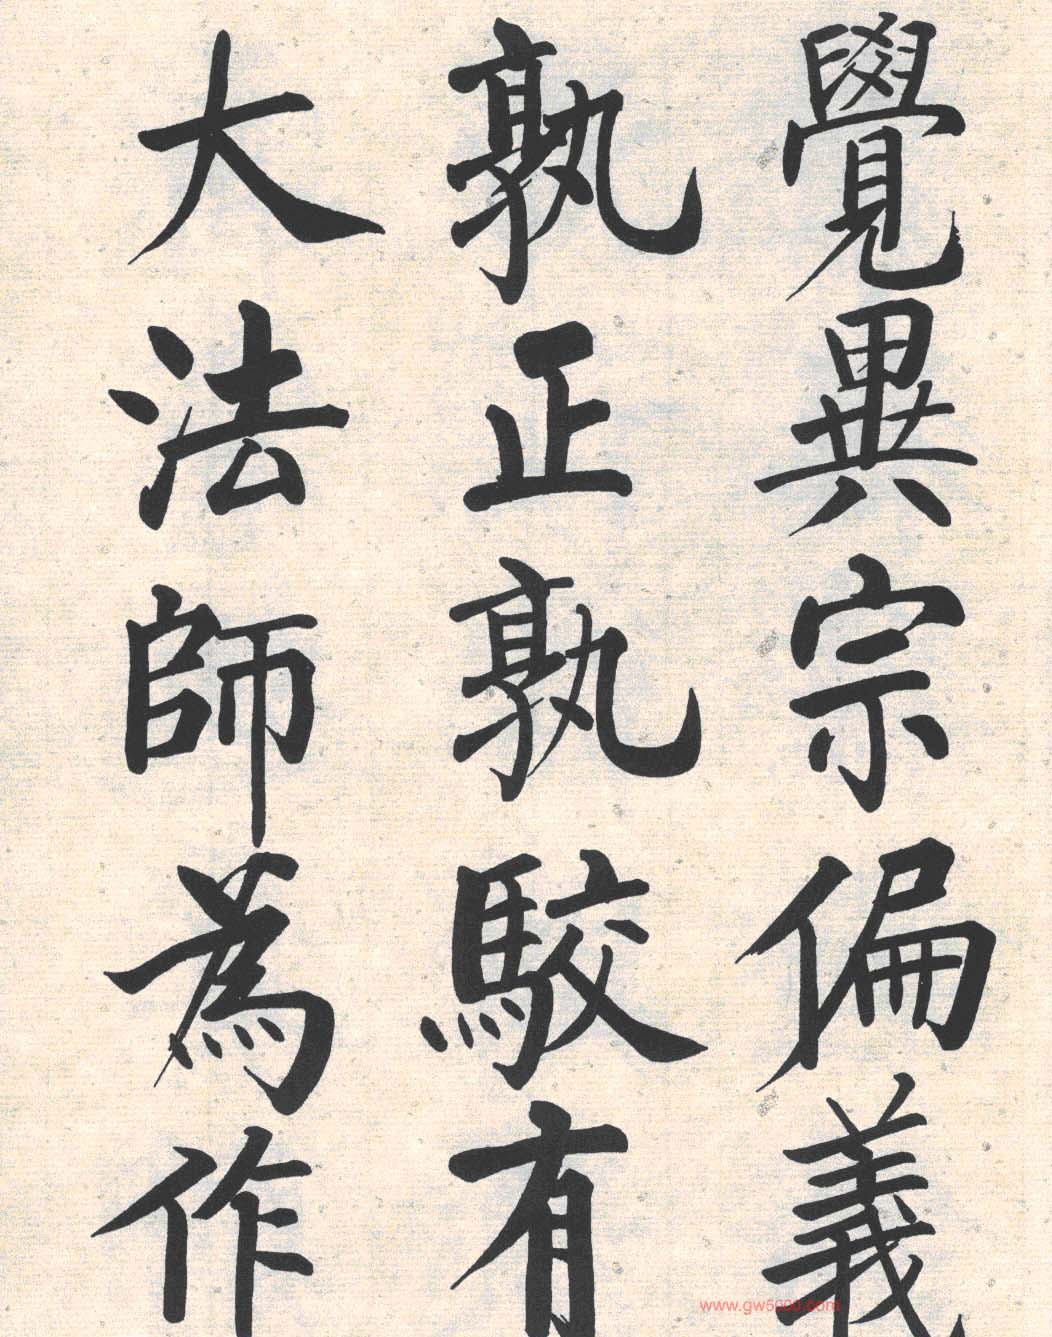 覺異宗偏義
孰正孰駮有
大法師為作
www.gw5000.com